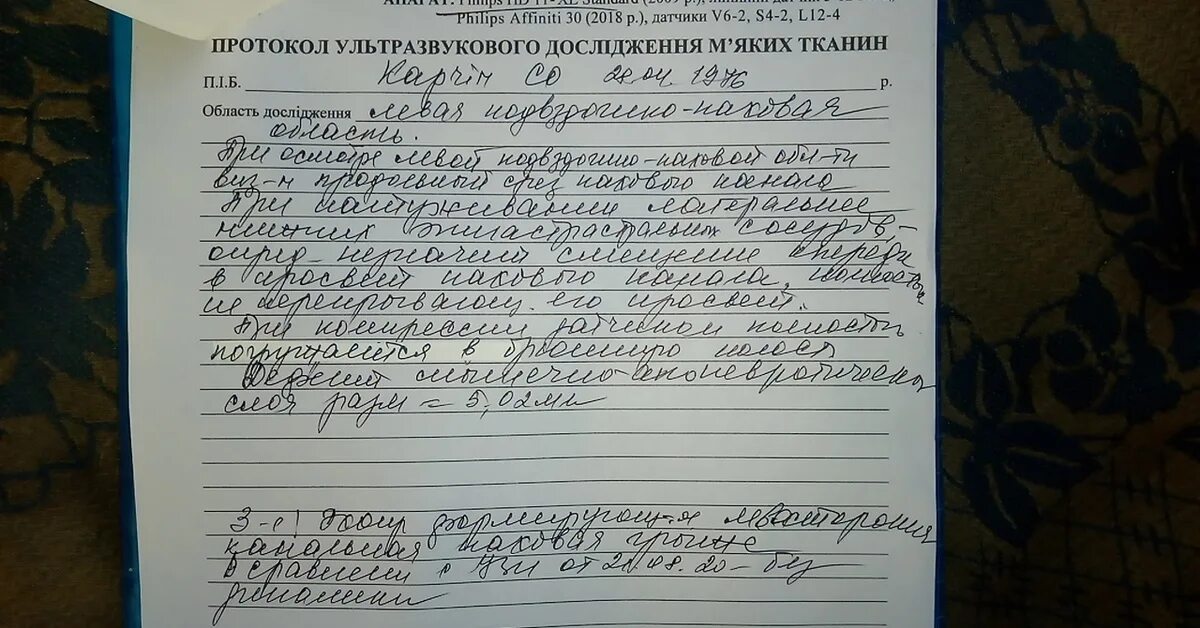 Philips Affiniti 30 (2018 р.), датчики V6-2, S4-2, L12-4
ПРОТОКОЛ УЛЬТРАЗВУКОВОГО ДОСЛІДЖЕННЯ М'ЯКИХ ТКАНИН
П.І.Б. 1976 р.
Область дослідження левая подвздошно-паховая
область.
При осмотре левой подвздошно-паховой обл-ти
виз-н продольный срез пахового канала
При натуживании латеральнее
нижних сосудов,
опред. незначит смещение кпереди
в просвет пахового канала, полностью
не перекрывающ. его просвет.
При компрессии датчиком полностью
погружается в брюшную полост
Дефект мышечно-апоневротическ
слоя разм = 5,02мм
З-е) Эхопр формирующ-я левостороння
канальная паховая грыже
В сравнени с УЗИ от без
динамики